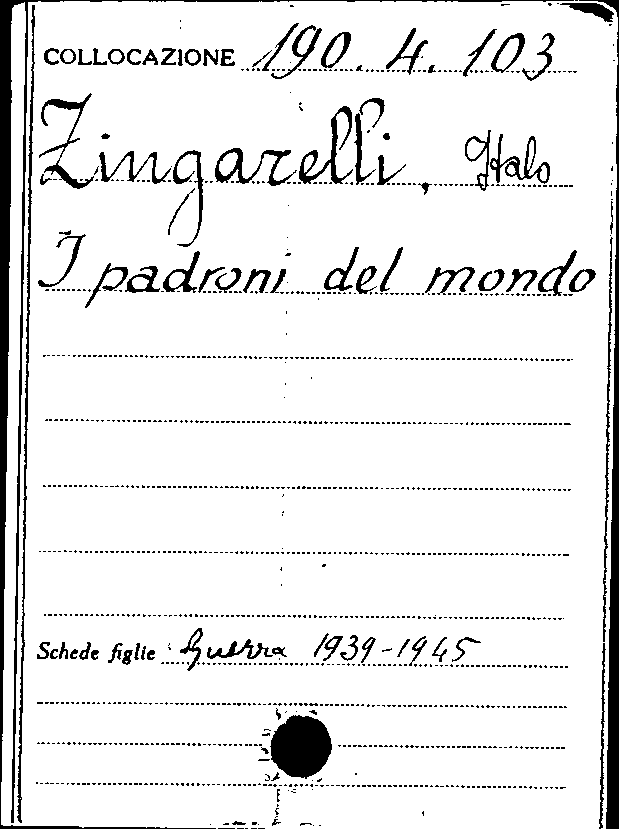 COLLOCAZIONE 190. 4. 103
Zingarelli, Italo
I padroni del mondo
Schede figlie Guerra 1939-1945